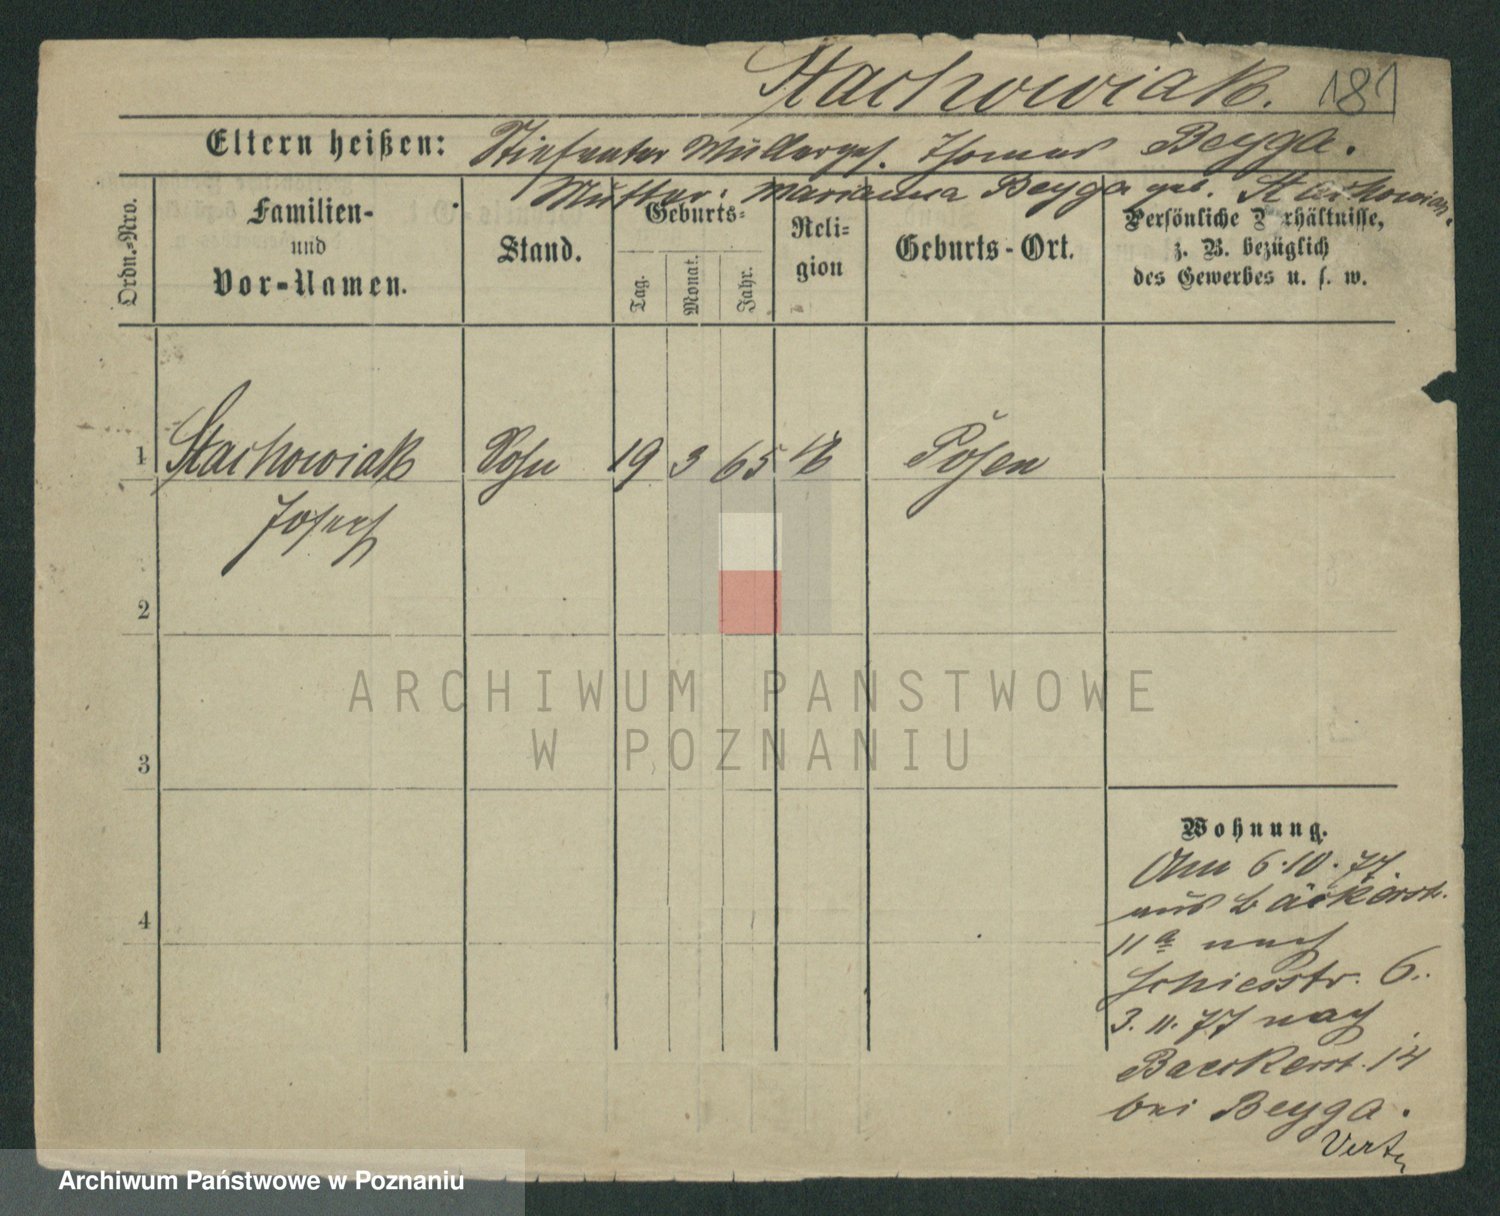 Stachowiak. 181
Eltern heißen: Stiefvater Müllerges. Thomas Beyga.
Mutter: Marianna Beyga geb. Stachowiak.
Ordn.-Nro.
Familien-
und
Vor-Namen.
Stand.
Geburts-
Tag.
Monat.
Jahr.
Reli-
gion
Geburts-Ort.
Persönliche Verhältnisse,
z. B. bezüglich
des Gewerbes u. s. w.
1 Stachowiak Sohn 19 3 65 k Posen
Josef
2
3
4
ARCHIWUM PAŃSTWOWE
W POZNANIU
Wohnung.
Am 6.10.77.
aus Bäckerstr.
11a nach
Schiesstr. 6.
3.11.77 nach
Baeckerst. 14
bei Beyga.
Vert
Archiwum Państwowe w Poznaniu